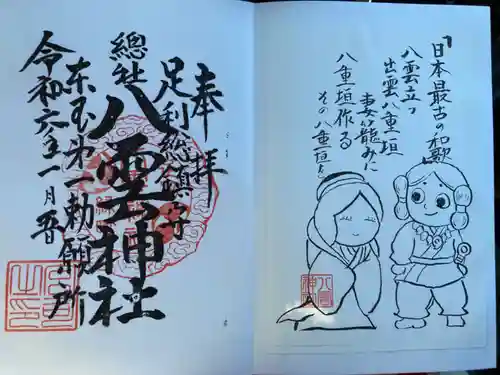 「日本最古の和歌
八雲立つ
出雲八重垣
妻籠みに
八重垣作る
その八重垣を
奉拝
足利総鎮守
總社
八雲神社
東国第一勅願所
令和六年一月五日